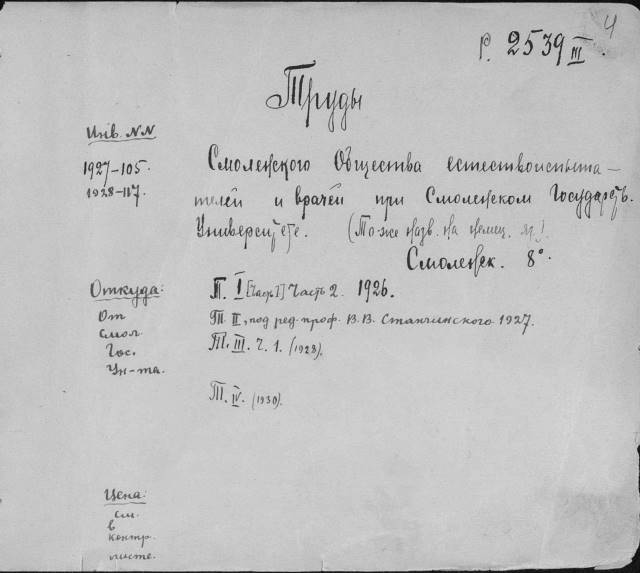 4
Р. 2539 III.
Труды
Инв. NN
1927-105.
1928-117.
Смоленского Общества естествоиспыта-
телей и врачей при Смоленском Государств.
Университете. (То-же назв. на немец. яз.).
Смоленск. 8°.
Откуда:
От
Смол.
Гос.
Ун-та.
Т. I [Часть I] Часть 2. 1926.
Т. II, под ред. проф. В.В. Станчинского 1927.
Т. III. Ч. 1. (1928).
Т. IV. (1930).
Цена:
см.
в
контр.
листе.